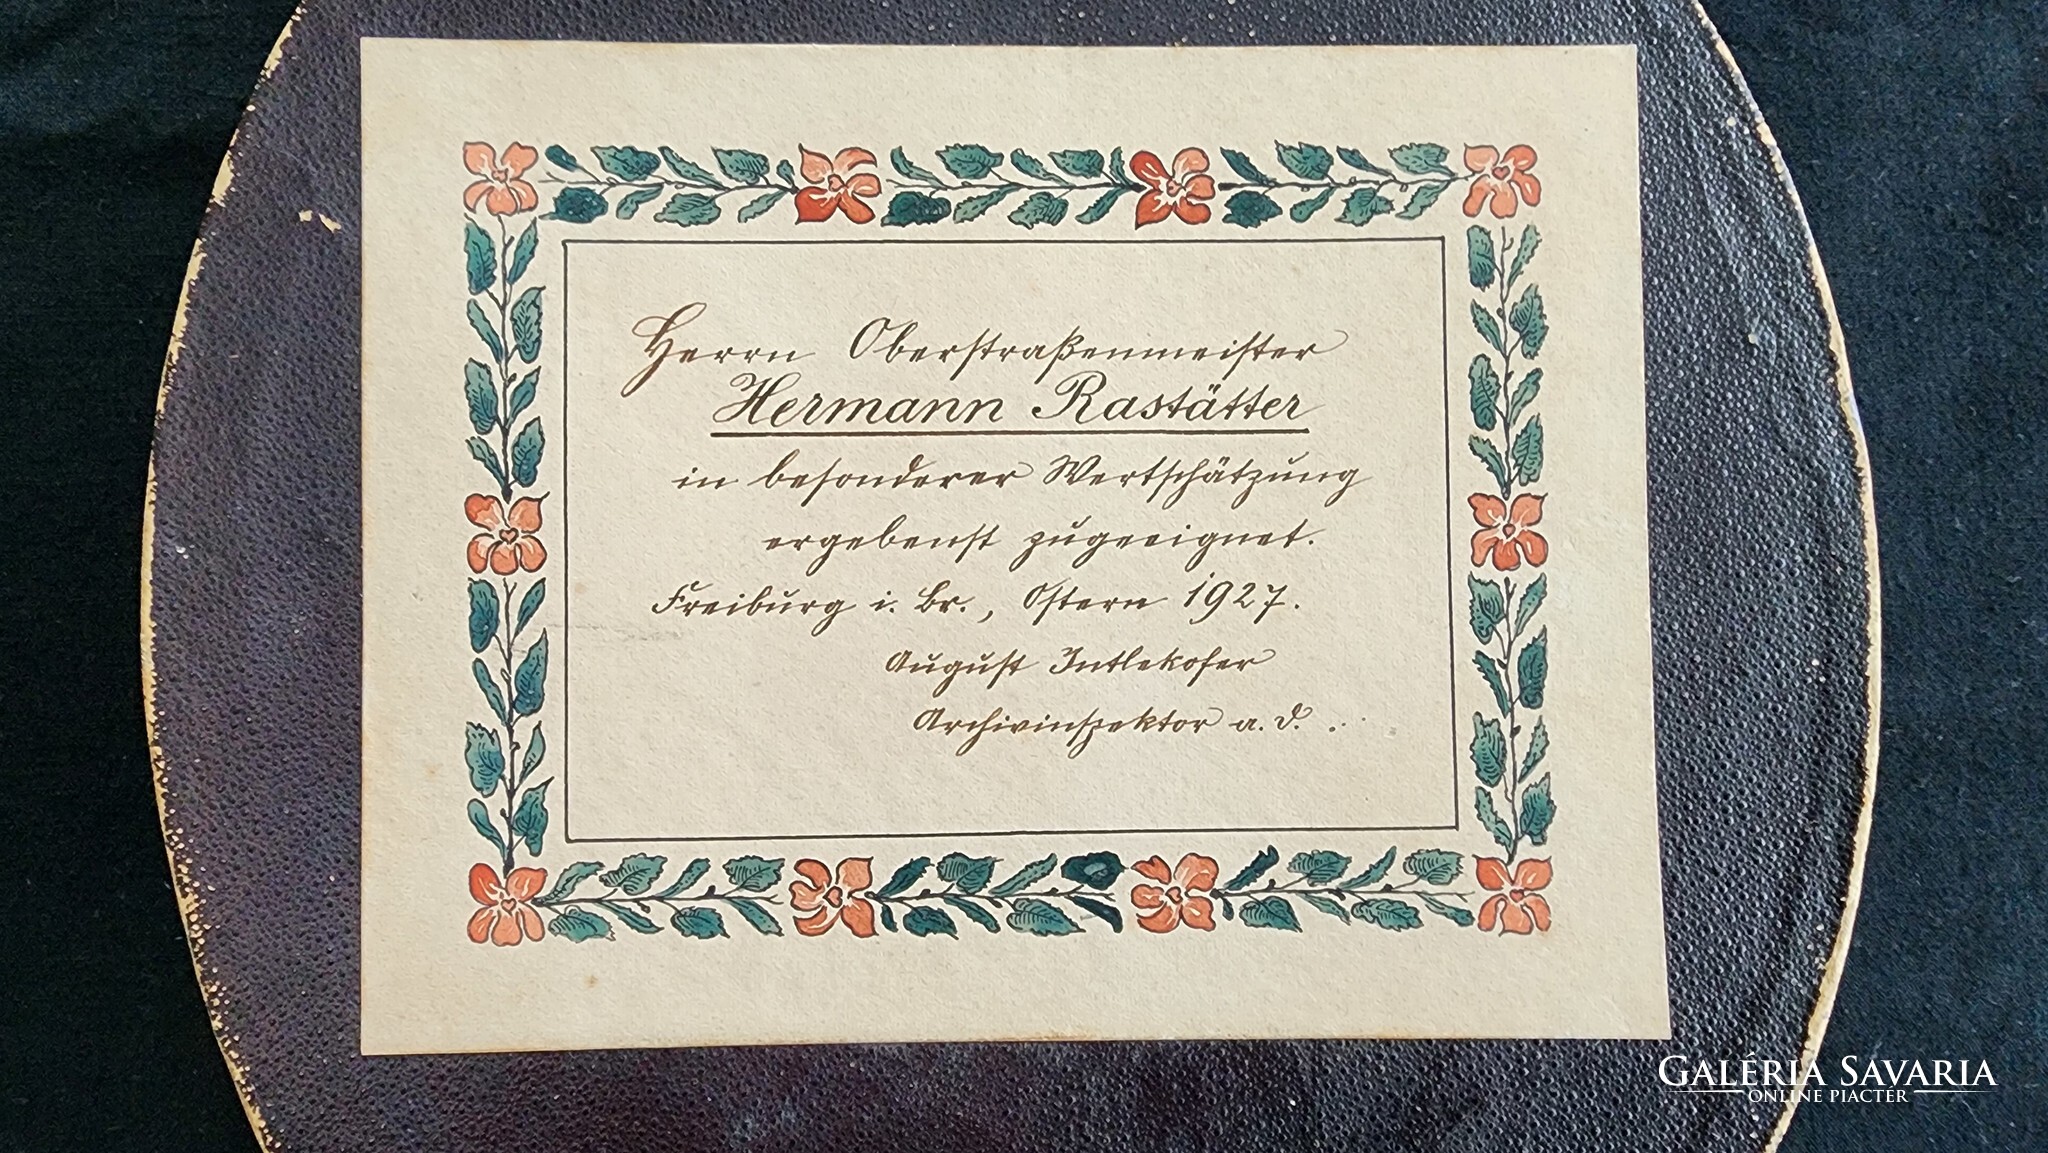 Herrn Oberstraßenmeister
Hermann Rastätter
in besonderer Wertschätzung
ergebenst zugeeignet.
Freiburg i. Br., Ostern 1927.
August Intlekofer
Archivinspektor a. D.
GALÉRIA SAVARIA
ONLINE PIACTÉR